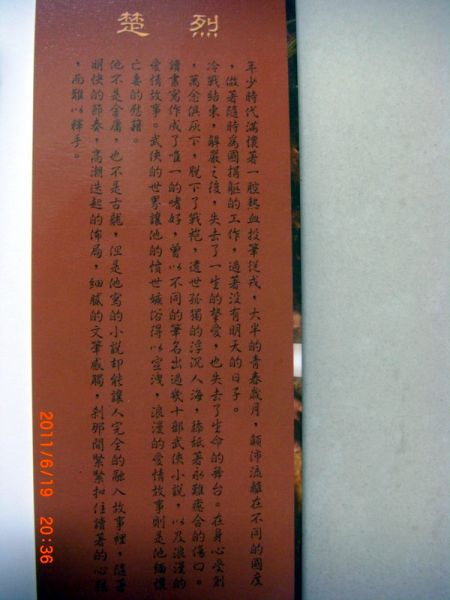 楚烈
年少時代滿懷著一腔熱血投筆從戎,大半的青春歲月,顛沛流離在不同的國度
,做著隨時為國捐軀的工作,過著沒有明天的日子。
冷戰結束,解嚴之後,失去了一生的摯愛,也失去了生命的舞台。在身心受創
,萬念俱灰下,脫下了戰袍,遺世孤獨的浮沉人海,舔舐著永難癒合的傷口。
讀書寫作成了唯一的嗜好,曾以不同的筆名出過幾十部武俠小說,以及浪漫的
愛情故事。武俠的世界讓他的憤世嫉俗得以宣洩,浪漫的愛情故事則是他緬懷
亡妻的慰藉。
他不是金庸,也不是古龍,但是他寫的小說卻能讓人完全的融入故事裡,隨著
明快的節奏,高潮迭起的佈局,細膩的文筆感觸,剎那間緊緊扣住讀著的心弦
,而難以釋手。
2011/6/19 20:36